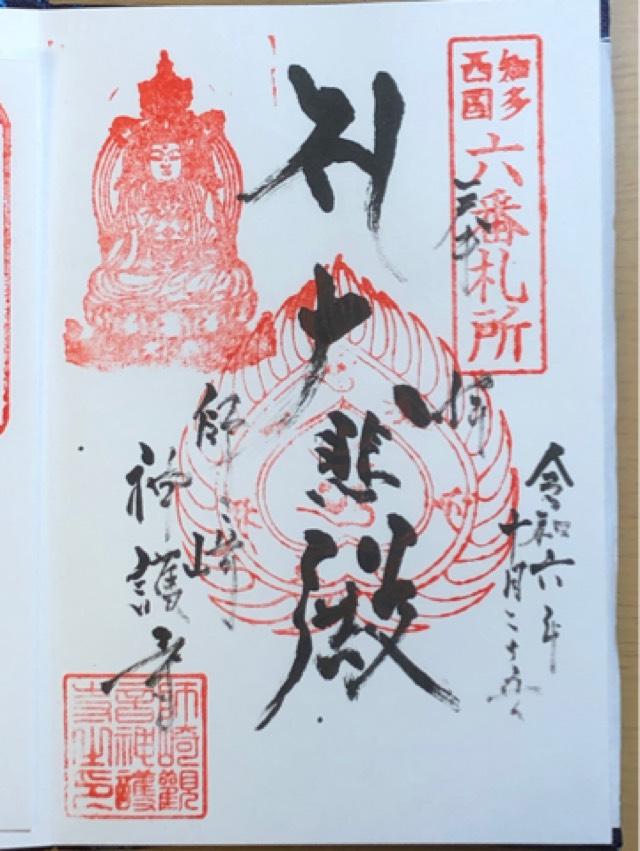 知多
西国
六番札所
奉拝
令和六年
十月二十
大悲殿
師崎
神護寺
師崎觀
音神護
寺之印